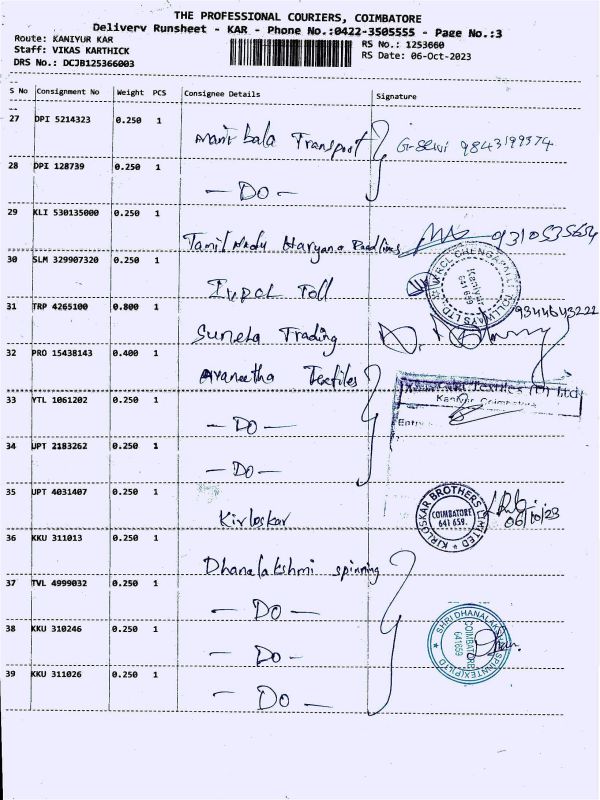 THE PROFESSIONAL COURIERS, COIMBATORE
Delivery Runsheet - KAR - Phone No.:0422-3505555 - Page No.:3
Route: KANIYUR KAR
Staff: VIKAS KARTHICK
DRS No.: DCJB125366003
RS No.: 1253660
RS Date: 06-Oct-2023
S No Consignment No Weight PCS Consignee Details Signature
27 DPI 5214323 0.250 1
Mani bala Transport G-Selvi 9843199374
28 DPI 128739 0.250 1
— DO —
29 KLI 530135000 0.250 1
Tamil Nadu Haryana Roadlines 9310535654
30 SLM 329907320 0.250 1
IVRCL Toll
IVRCL CHENGAPALLI TOLLWAYS LTD
Kaniyur
641 659
31 TRP 4265100 0.800 1
9344643222
Suneta Trading
32 PRO 15438143 0.400 1
Avaneetha Textiles
Textiles (P) Ltd
Kaniyur, Coimbatore
Entry
33 YTL 1061202 0.250 1
— DO —
34 JPT 2183262 0.250 1
— DO —
35 JPT 4031407 0.250 1
Kirloskar
KIRLOSKAR BROTHERS LIMITED
COIMBATORE
641 659.
06/10/23
36 KKU 311013 0.250 1
Dhanalakshmi spinning
37 TVL 4999032 0.250 1
— DO —
38 KKU 310246 0.250 1
— DO —
SHRI DHANALAKSHMI SPINTEX (P) LTD
COIMBATORE
641659
39 KKU 311026 0.250 1
— DO —